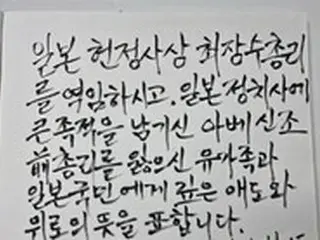 일본 헌정사상 최장수총리
를 역임하시고. 일본 정치사에
큰 족적을 남기신 아베 신조
前 총리를 잃으신 유가족과
일본국민에게 깊은 애도와
위로의 뜻을 표합니다.